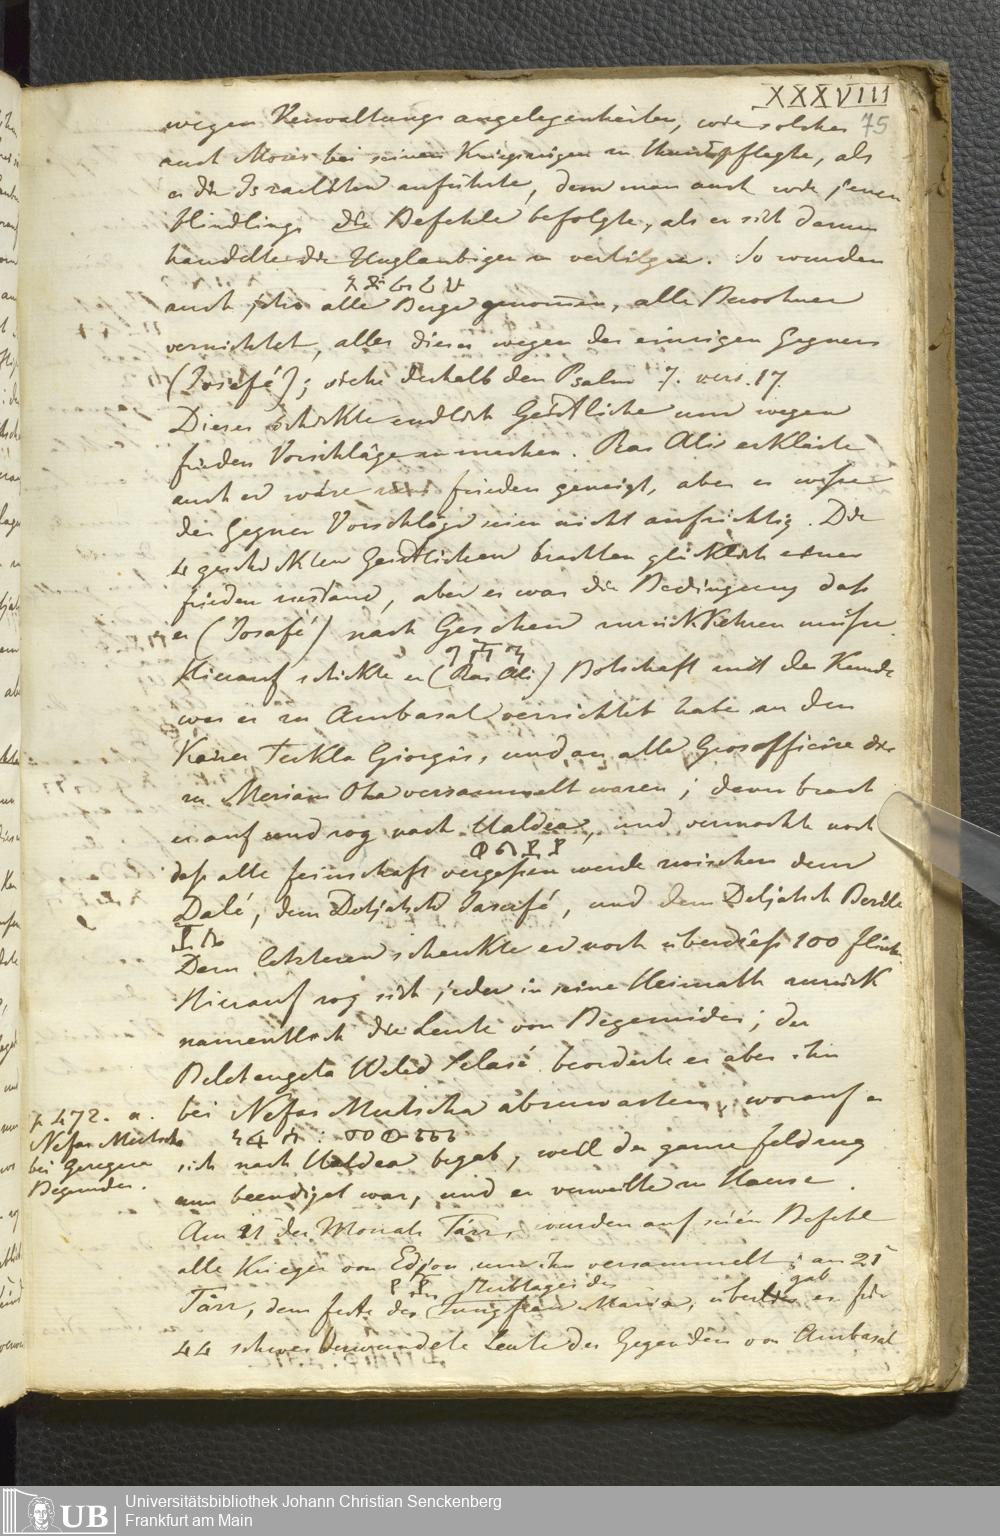 XXXVIII
75
wegen Verwaltungs angelegenheiten, wie solches
auch Moses bei seinen Kriegszügen zu thun pflegte, als
er die Israeliten anführte, dem man auch wie jenen
blindlings die Befehle befolgte, als er sich darum
handelte die Unglaubigen zu vertilgen. So wurden
auch alle Berge genommen, alle Bewohner
vernichtet, alles dieses wegen des einzigen Gegners
(Josefé); siehe deshalb den Psalm 7. vers. 17.
Dieser schickte endlich Geistliche um wegen
frieden Vorschläge zu machen. Ras Ali erklärte
auch er wäre zum frieden geneigt, aber er wisse
des Gegner Vorschläge seien nicht aufrichtig. Die
4 geschickten Geistlichen brachten glücklich einen
frieden zustand, aber es war die Bedingung daß
er (Josafé) nach Geschen zurückkehren müsse.
Hierauf schickte er (Ras Ali) Botschaft mit der Kunde
was er zu Ambasal verrichtet habe an den
Kaiser Tekla Giorgis, und an alle Grosofficire die
zu Meriam Oha versammelt waren; dann brach
er auf und zog nach Ualdea, und vermachte noch
daß alle feinschaft vergeßen werde zwischen dem
Dalé, dem Detjatsch Jasefé, und dem Detjatsch Berile
Dem letzteren schenkte er noch überdieß 100 flinten
Hierauf zog sich jeder in seine Heimath zurück
namentlich die Leute von Begemider; der
Beletangeta Weled Selasé beorderte er aber ihn
bei Nefas Mutscha abzuwarten, worauf er
ነፋስ፡መውጫ
sich nach Ualdea begab, weil der ganze feldzug
nun beendiget war, und er verweilte zu Hause.
Am 21 des Monats Tärr, wurden auf seien Befehl
alle Krieger von Edjou um ihn versammelt; am 21
Tärr, dem feste des Jungfrau Maria, übergab er für
44 schwer Verwundete Leute der Gegenden von Ambasel
p 472. a.
Nefas Mutscha
bei Geregera
Begemder.
UB
Universitätsbibliothek Johann Christian Senckenberg
Frankfurt am Main